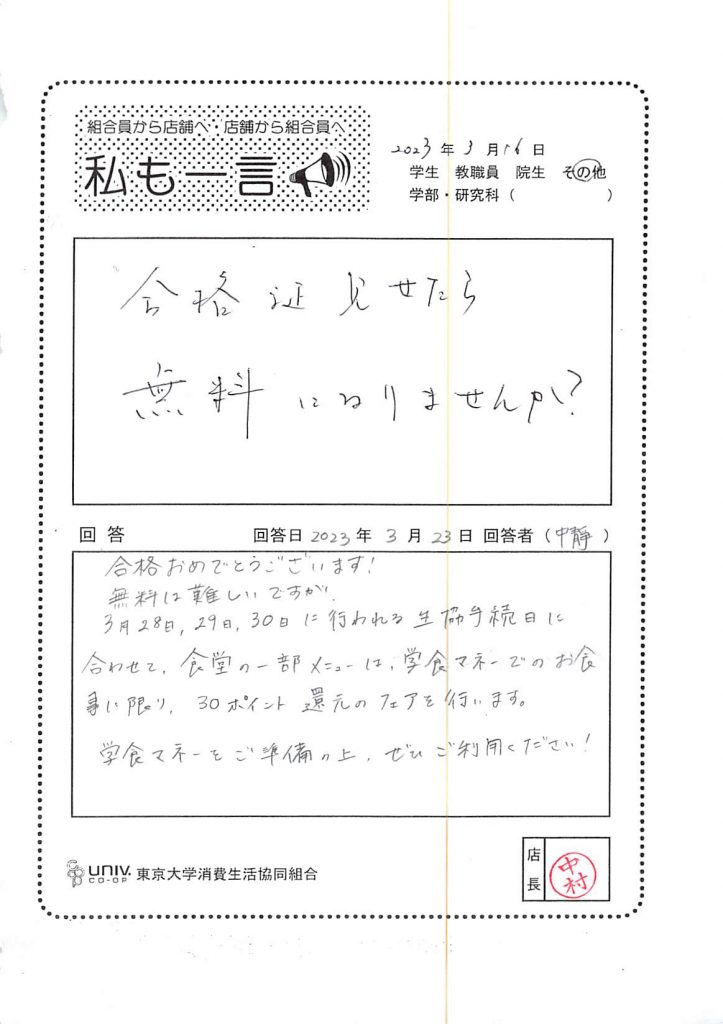 組合員から店舗へ・店舗から組合員へ
私も一言
2023年3月16日
学生 教職員 院生 その他
学部・研究科（ ）
合格証見せたら
無料になりませんか?
回答 回答日2023年3月23日 回答者（中静）
合格おめでとうございます!
無料は難しいですが、
3月28日,29日,30日に行われる生協手続日に
合わせて、食堂の一部メニューは、学食マネーでのお食
事に限り、30ポイント還元のフェアを行います。
学食マネーをご準備の上、ぜひご利用ください!
UNIV. CO-OP 東京大学消費生活協同組合
店長 中村